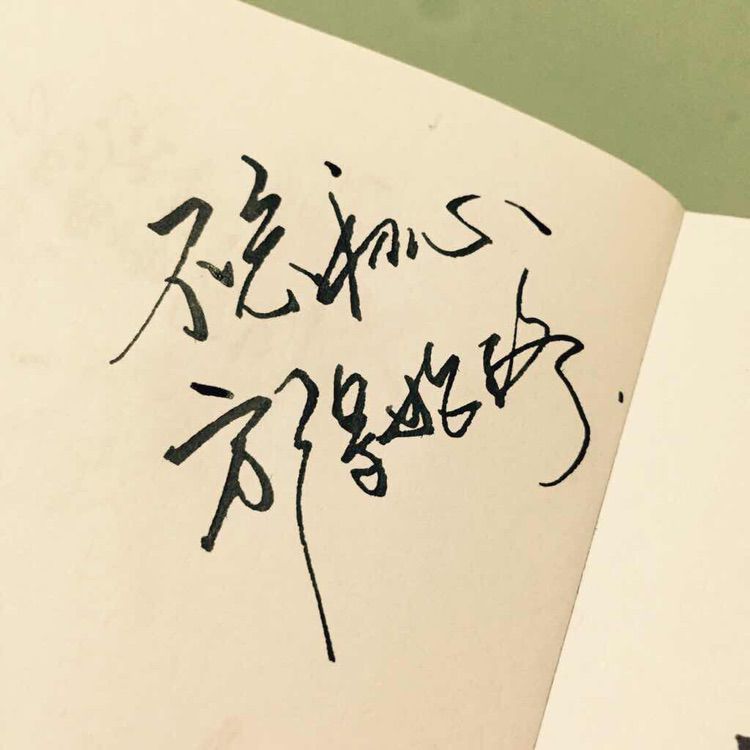 不忘初心
方得始终.